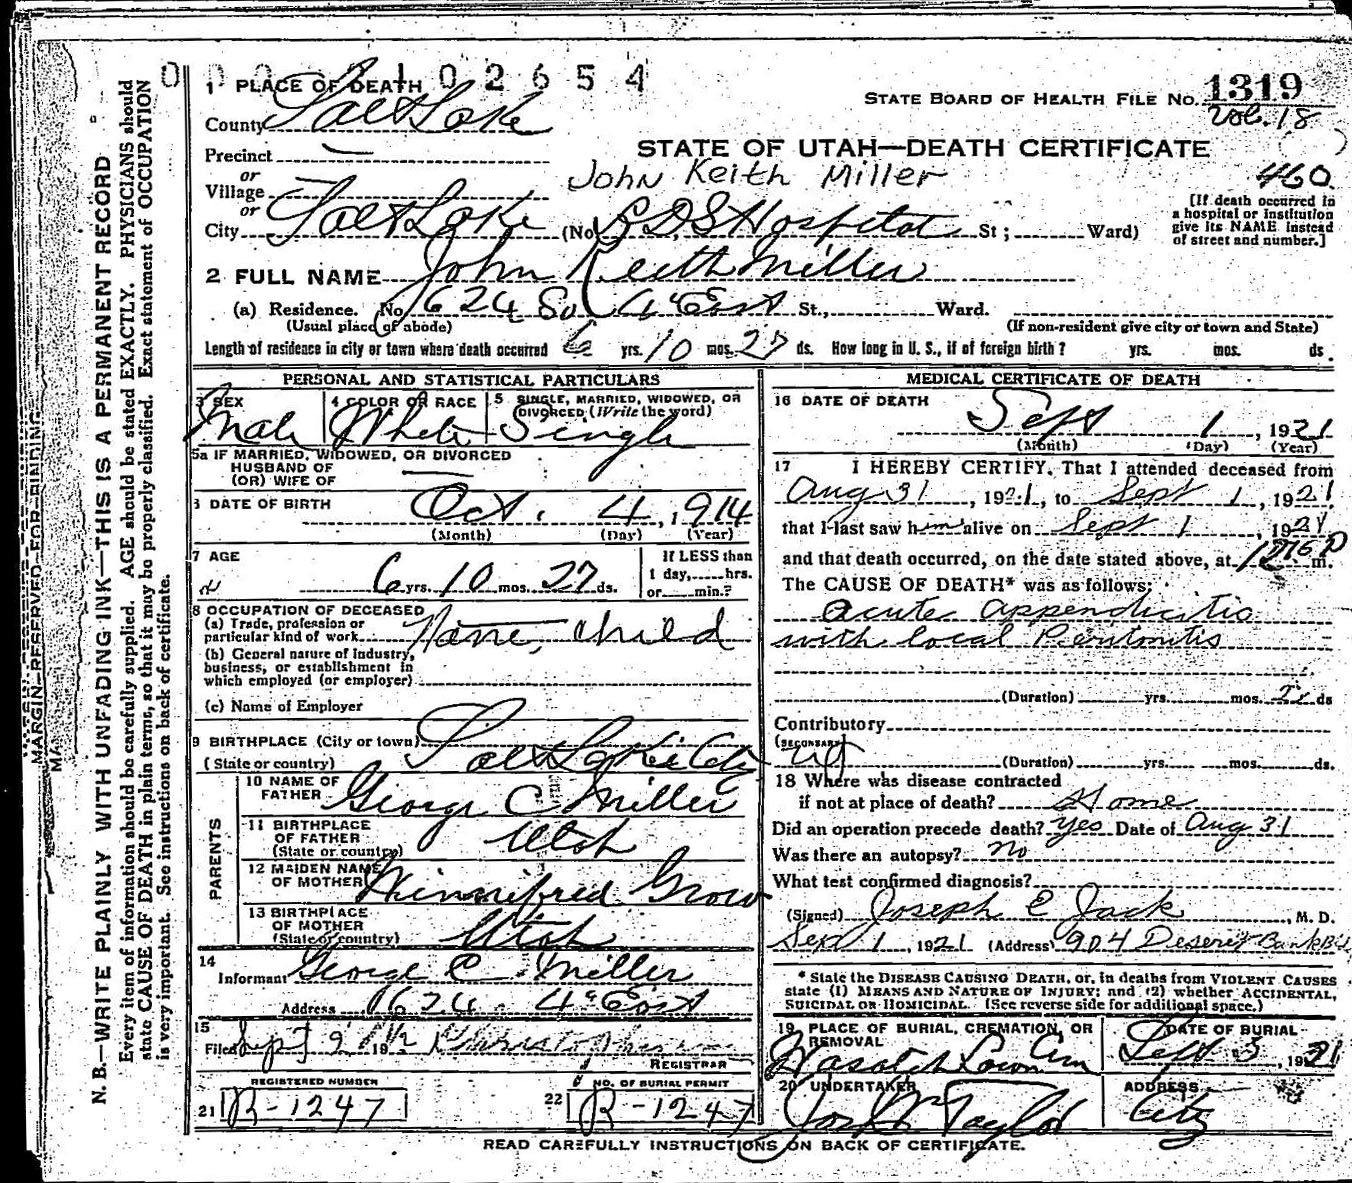 0 0 0 2 1 0 2 6 5 4
1 PLACE OF DEATH
STATE BOARD OF HEALTH FILE No. 1319
Vol. 18
County Salt Lake
Precinct
STATE OF UTAH—DEATH CERTIFICATE
or
Village
John Keith Miller
460
[If death occurred in a hospital or institution give its NAME instead of street and number.]
or
City Salt Lake (No. L D S Hospital St ; Ward)
2 FULL NAME John Keith Miller
(a) Residence. No. 1624 So 4th East St., Ward.
(Usual place of abode) (If non-resident give city or town and State)
Length of residence in city or town where death occurred 6 yrs. 10 mos. 27 ds. How long in U. S., if of foreign birth? yrs. mos. ds.
PERSONAL AND STATISTICAL PARTICULARS
3 SEX Male
4 COLOR OR RACE White
5 SINGLE, MARRIED, WIDOWED, OR DIVORCED (Write the word) Single
5a IF MARRIED, WIDOWED, OR DIVORCED
HUSBAND OF
(OR) WIFE OF
6 DATE OF BIRTH Oct. 4, 1914
(Month) (Day) (Year)
7 AGE 6 yrs. 10 mos. 27 ds.
If LESS than
1 day, hrs.
or min.?
8 OCCUPATION OF DECEASED
(a) Trade, profession or
particular kind of work None, child
(b) General nature of industry,
business, or establishment in
which employed (or employer)
(c) Name of Employer
9 BIRTHPLACE (City or town) Salt Lake City
(State or country)
PARENTS
10 NAME OF FATHER George C Miller
11 BIRTHPLACE OF FATHER (State or country) Utah
12 MAIDEN NAME OF MOTHER Winnifred Grow
13 BIRTHPLACE OF MOTHER (State or country) Utah
14 Informant George C. Miller
Address 1624 4th East
15 Filed Sept 2
REGISTRAR
REGISTERED NUMBER
21 R-1247
NO. OF BURIAL PERMIT
22 R-1247
MEDICAL CERTIFICATE OF DEATH
16 DATE OF DEATH Sept 1, 1921
(Month) (Day) (Year)
17 I HEREBY CERTIFY, That I attended deceased from
Aug 31, 1921, to Sept 1, 1921
that I last saw him alive on Sept 1 1921
and that death occurred, on the date stated above, at m.
The CAUSE OF DEATH* was as follows:
acute appendicitis
with local Peritonitis
(Duration) yrs. mos. 2 ds
Contributory
(SECONDARY)
(Duration) yrs. mos. ds.
18 Where was disease contracted
if not at place of death? Home
Did an operation precede death? yes Date of Aug 31
Was there an autopsy? no
What test confirmed diagnosis?
(Signed) Joseph E Jack, M. D.
Sept 1, 1921 (Address) 904 Deseret Bank Bld
* State the DISEASE CAUSING DEATH, or, in deaths from VIOLENT CAUSES
state (1) MEANS AND NATURE OF INJURY; and (2) whether ACCIDENTAL,
SUICIDAL OR HOMICIDAL. (See reverse side for additional space.)
19 PLACE OF BURIAL, CREMATION, OR REMOVAL
Wasatch Lawn Cem
DATE OF BURIAL
Sept 3, 1921
20 UNDERTAKER
Jos Wm Taylor
ADDRESS
City
READ CAREFULLY INSTRUCTIONS ON BACK OF CERTIFICATE.
MARGIN RESERVED FOR BINDING
N. B.—WRITE PLAINLY WITH UNFADING INK—THIS IS A PERMANENT RECORD
Every item of information should be carefully supplied. AGE should be stated EXACTLY. PHYSICIANS should
state CAUSE OF DEATH in plain terms, so that it may be properly classified. Exact statement of OCCUPATION
is very important. See instructions on back of certificate.